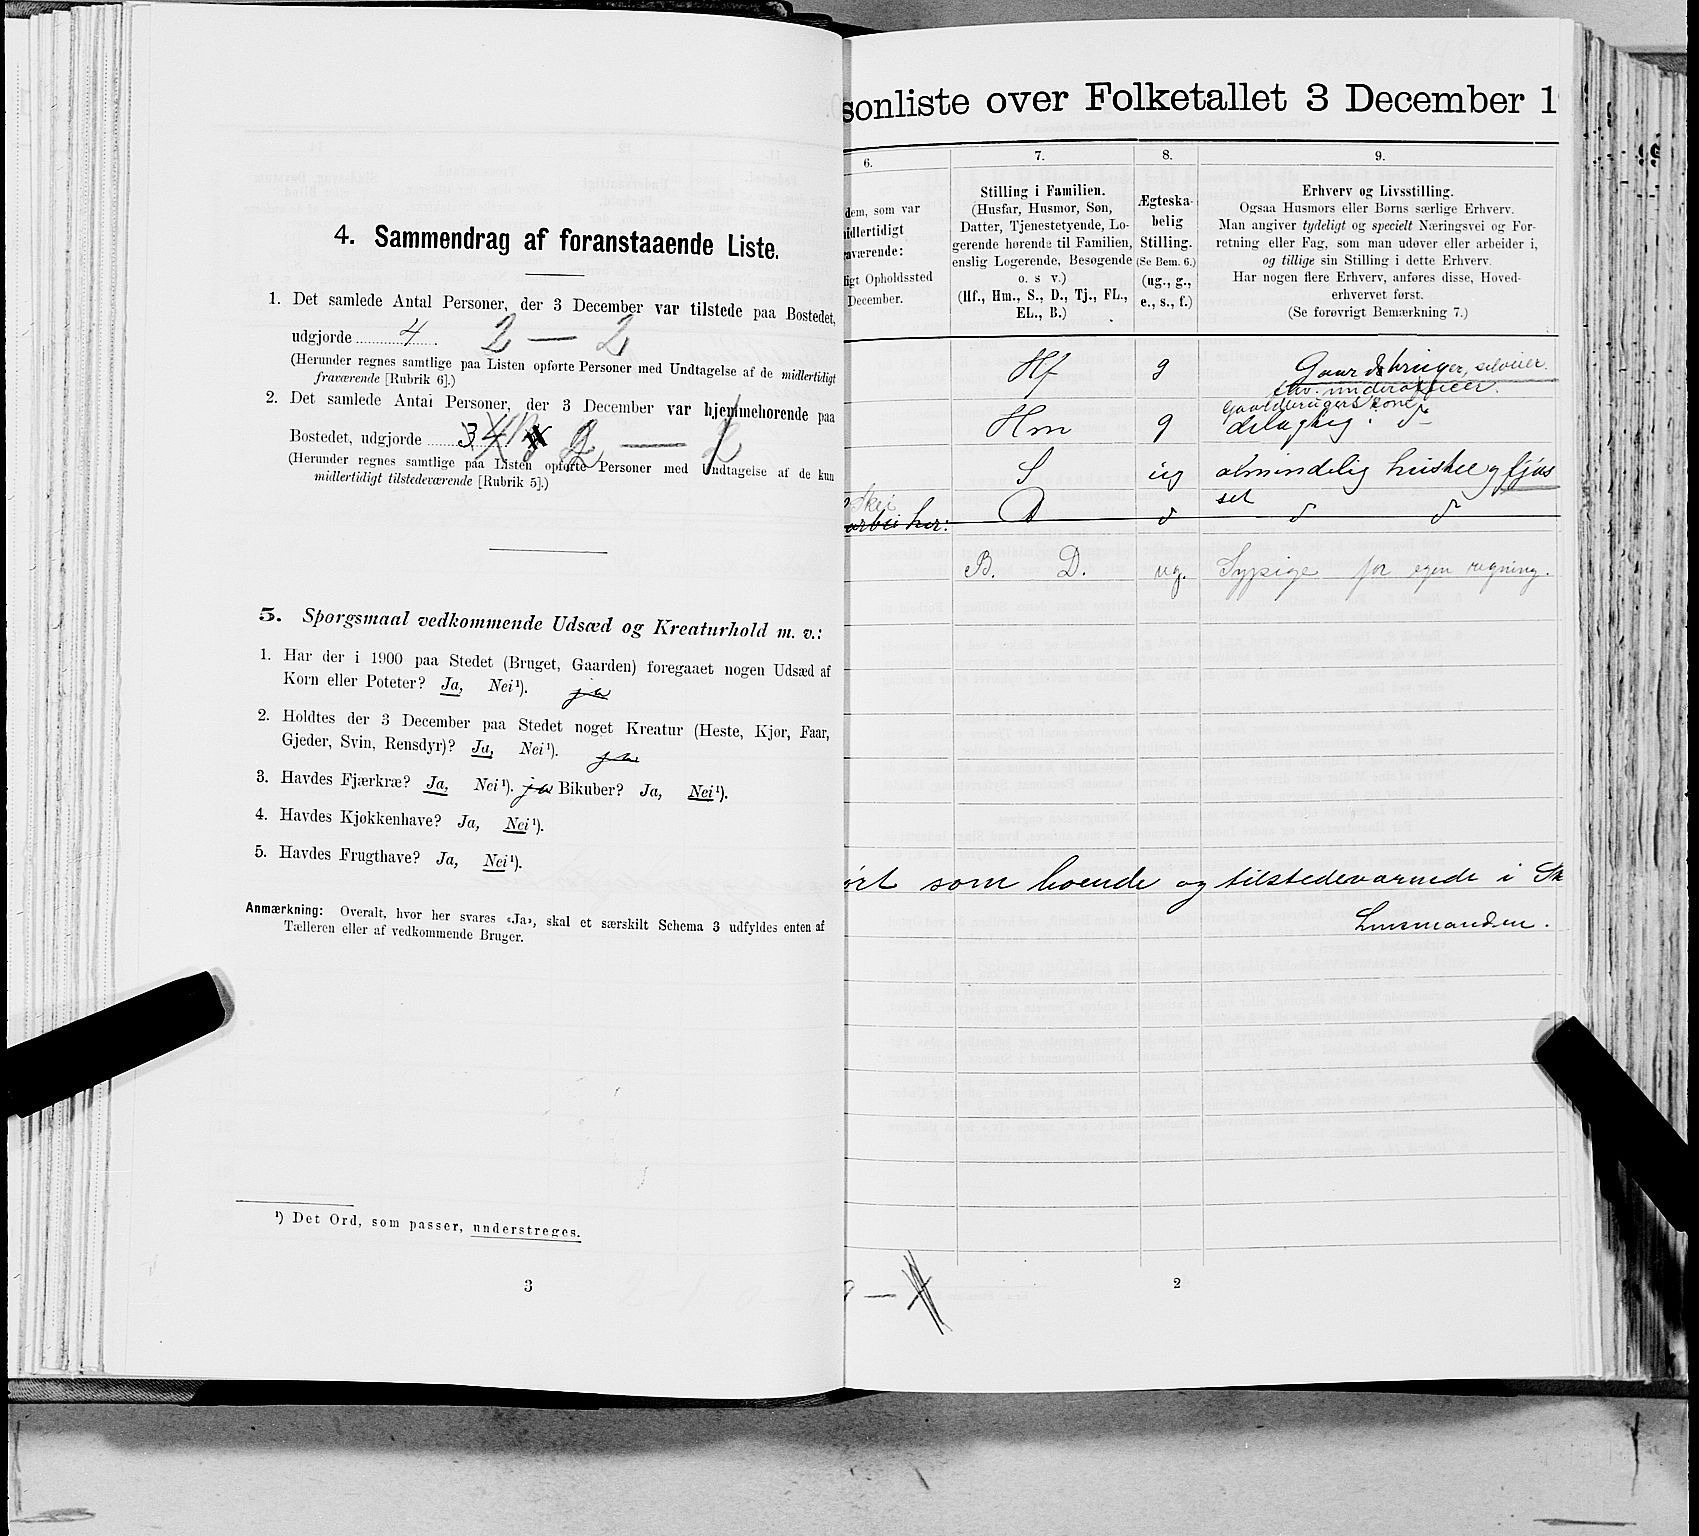 4. Sammendrag af foranstaaende Liste.
1. Det samlede Antal Personer, der 3 December var tilstede paa Bostedet,
udgjorde 4 . 2 — 2
(Herunder regnes samtlige paa Listen opførte Personer med Undtagelse af de midlertidigt
fraværende [Rubrik 6].)
2. Det samlede Antal Personer, der 3 December var hjemmehørende paa
Bostedet, udgjorde
(Herunder regnes samtlige paa Listen opførte Personer med Undtagelse af de kun
midlertidigt tilstedeværende [Rubrik 5].)
5. Spørgsmaal vedkommende Udsæd og Kreaturhold m. v.:
1. Har der i 1900 paa Stedet (Bruget, Gaarden) foregaaet nogen Udsæd af
Korn eller Poteter? Ja, Nei¹). ja
2. Holdtes der 3 December paa Stedet noget Kreatur (Heste, Kjør, Faar,
Gjeder, Svin, Rensdyr)? Ja, Nei¹). ja
3. Havdes Fjærkræ? Ja, Nei¹). ja Bikuber? Ja, Nei¹).
4. Havdes Kjøkkenhave? Ja, Nei¹).
5. Havdes Frugthave? Ja, Nei¹).
Anmærkning: Overalt, hvor her svares «Ja», skal et særskilt Schema 3 udfyldes enten af
Tælleren eller af vedkommende Bruger.
¹) Det Ord, som passer, understreges.
3
sonliste over Folketallet 3 December 1
6.
dem, som var
idlertidigt
aværende:
igt Opholdssted
December.
7.
Stilling i Familien.
(Husfar, Husmor, Søn,
Datter, Tjenestetyende, Lo-
gerende hørende til Familien,
enslig Logerende, Besøgende
o. s v.)
(Hf., Hm., S., D., Tj., FL.,
EL., B.)
8.
Ægteska-
belig
Stilling.
(Se Bem. 6.)
(ug., g.,
e., s., f.)
9.
Erhverv og Livsstilling.
Ogsaa Husmors eller Børns særlige Erhverv.
Man angiver tydeligt og specielt Næringsvei og For-
retning eller Fag, som man udøver eller arbeider i,
og tillige sin Stilling i dette Erhverv.
Har nogen flere Erhverv, anføres disse, Hoved-
erhvervet først.
(Se forøvrigt Bemærkning 7.)
Hf g Gaardbruger, selveier.
underofficer.
Gaardbrugers kone
Hm g
S ug almindelig huslee g fjøs
Skei sel
her: D
B. D. ug. Sypige for egen regning.
ørt som boende og tilstedeværende i Sk
Lensmanden.
2